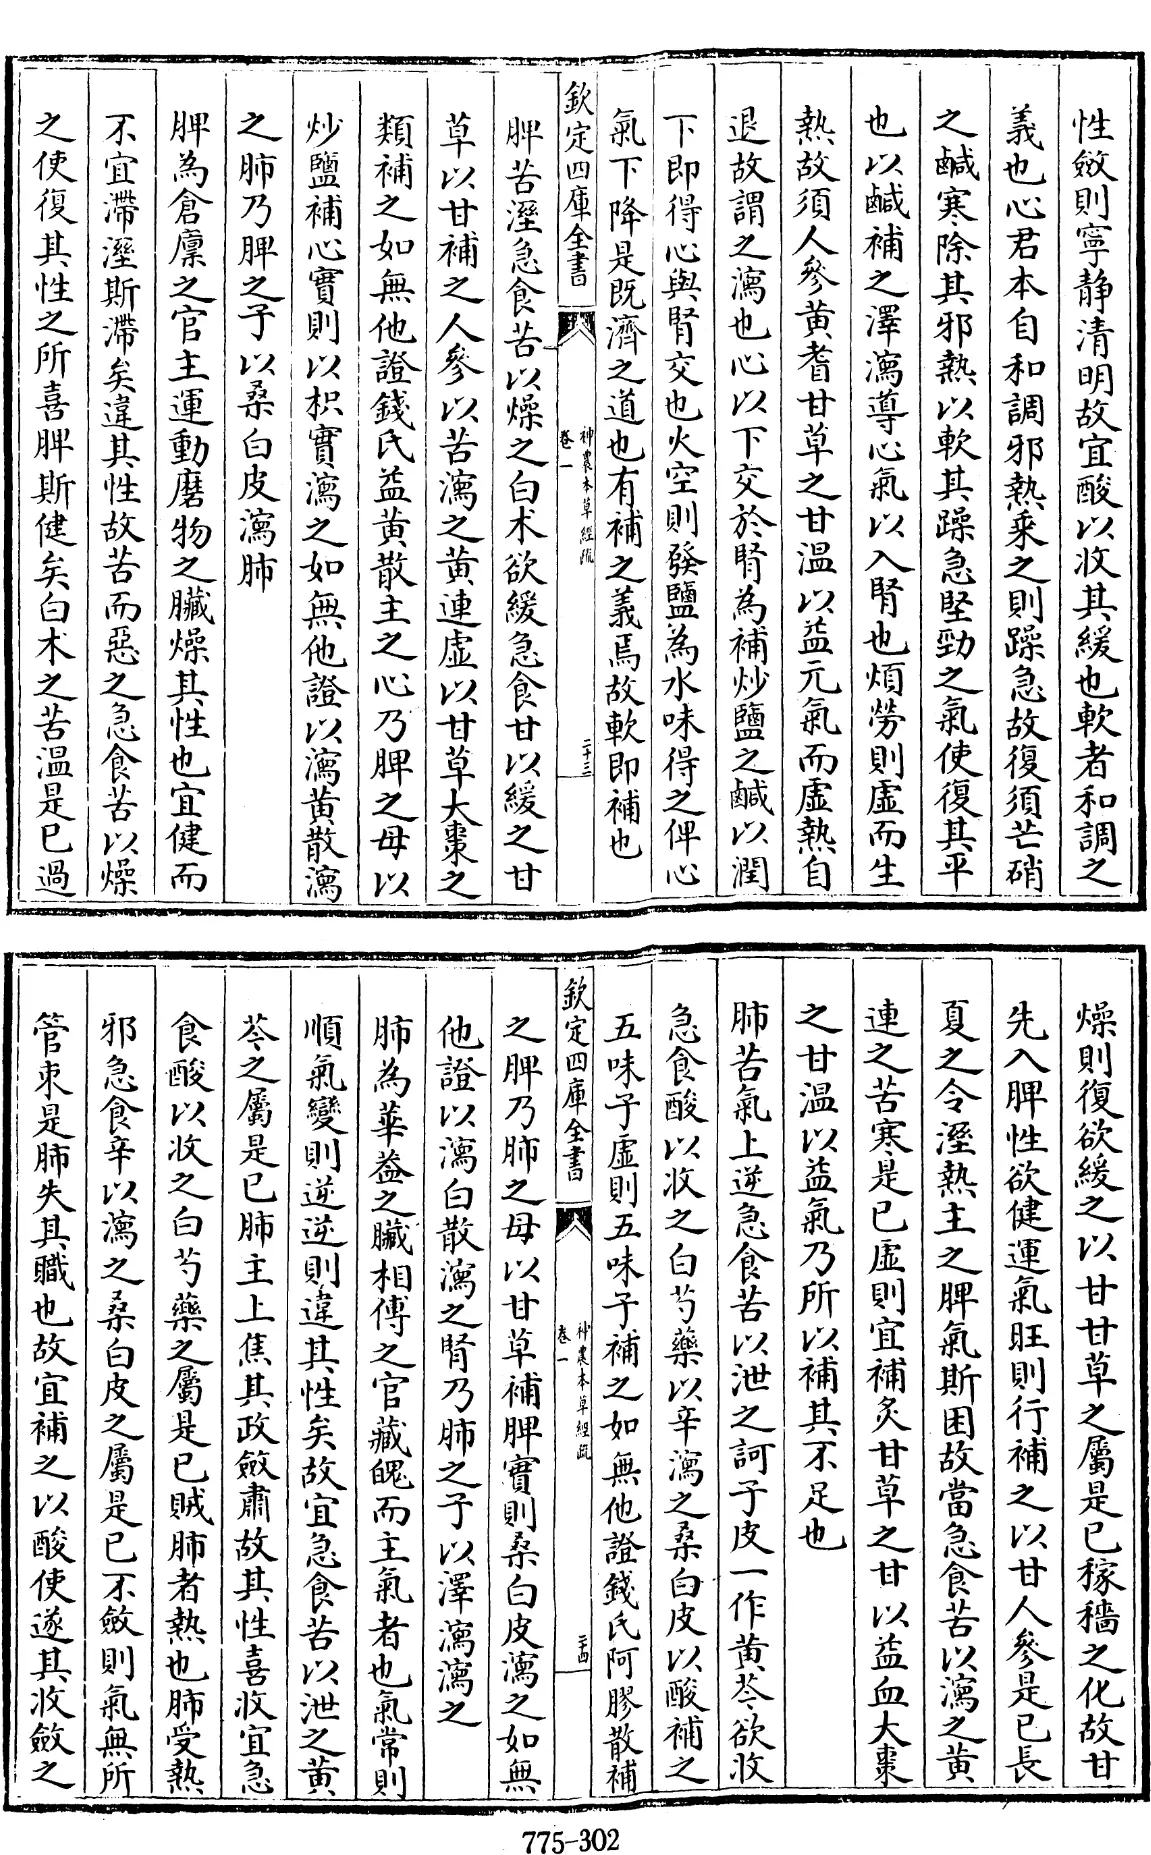 性斂則寧静清明故宜酸以收其緩也軟者和調之
義也心君本自和調邪熱乘之則躁急故復須芒硝
之鹹寒除其邪熱以軟其躁急堅勁之氣使復其平
也以鹹補之澤瀉導心氣以入腎也煩勞則虛而生
熱故須人參黄耆甘草之甘温以益元氣而虛熱自
退故謂之瀉也心以下交於腎為補炒鹽之鹹以潤
下即得心與腎交也火空則發鹽為水味得之俾心
氣下降是既濟之道也有補之義焉故軟即補也
欽定四庫全書
神農本草經疏
卷一
二十三
脾苦溼急食苦以燥之白术欲緩急食甘以緩之甘
草以甘補之人參以苦瀉之黄連虛以甘草大棗之
類補之如無他證錢氏益黄散主之心乃脾之母以
炒鹽補心實則以枳實瀉之如無他證以瀉黄散瀉
之肺乃脾之子以桑白皮瀉肺
脾為倉廪之官主運動磨物之臟燥其性也宜健而
不宜滯溼斯滯矣違其性故苦而惡之急食苦以燥
之使復其性之所喜脾斯健矣白术之苦温是已過
燥則復欲緩之以甘甘草之屬是已稼穡之化故甘
先入脾性欲健運氣旺則行補之以甘人參是已長
夏之令溼熱主之脾氣斯困故當急食苦以瀉之黄
連之苦寒是已虛則宜補炙甘草之甘以益血大棗
之甘温以益氣乃所以補其不足也
肺苦氣上逆急食苦以泄之訶子皮一作黄芩欲收
急食酸以收之白芍藥以辛瀉之桑白皮以酸補之
五味子虛則五味子補之如無他證錢氏阿膠散補
欽定四庫全書
神農本草經疏
卷一
二十四
之脾乃肺之母以甘草補脾實則桑白皮瀉之如無
他證以瀉白散瀉之腎乃肺之子以澤瀉瀉之
肺為華葢之臟相傅之官藏魄而主氣者也氣常則
順氣變則逆逆則違其性矣故宜急食苦以泄之黄
芩之屬是已肺主上焦其政斂肅故其性喜收宜急
食酸以收之白芍藥之屬是已賊肺者熱也肺受熱
邪急食辛以瀉之桑白皮之屬是已不斂則氣無所
管束是肺失其職也故宜補之以酸使遂其收斂之
775-302